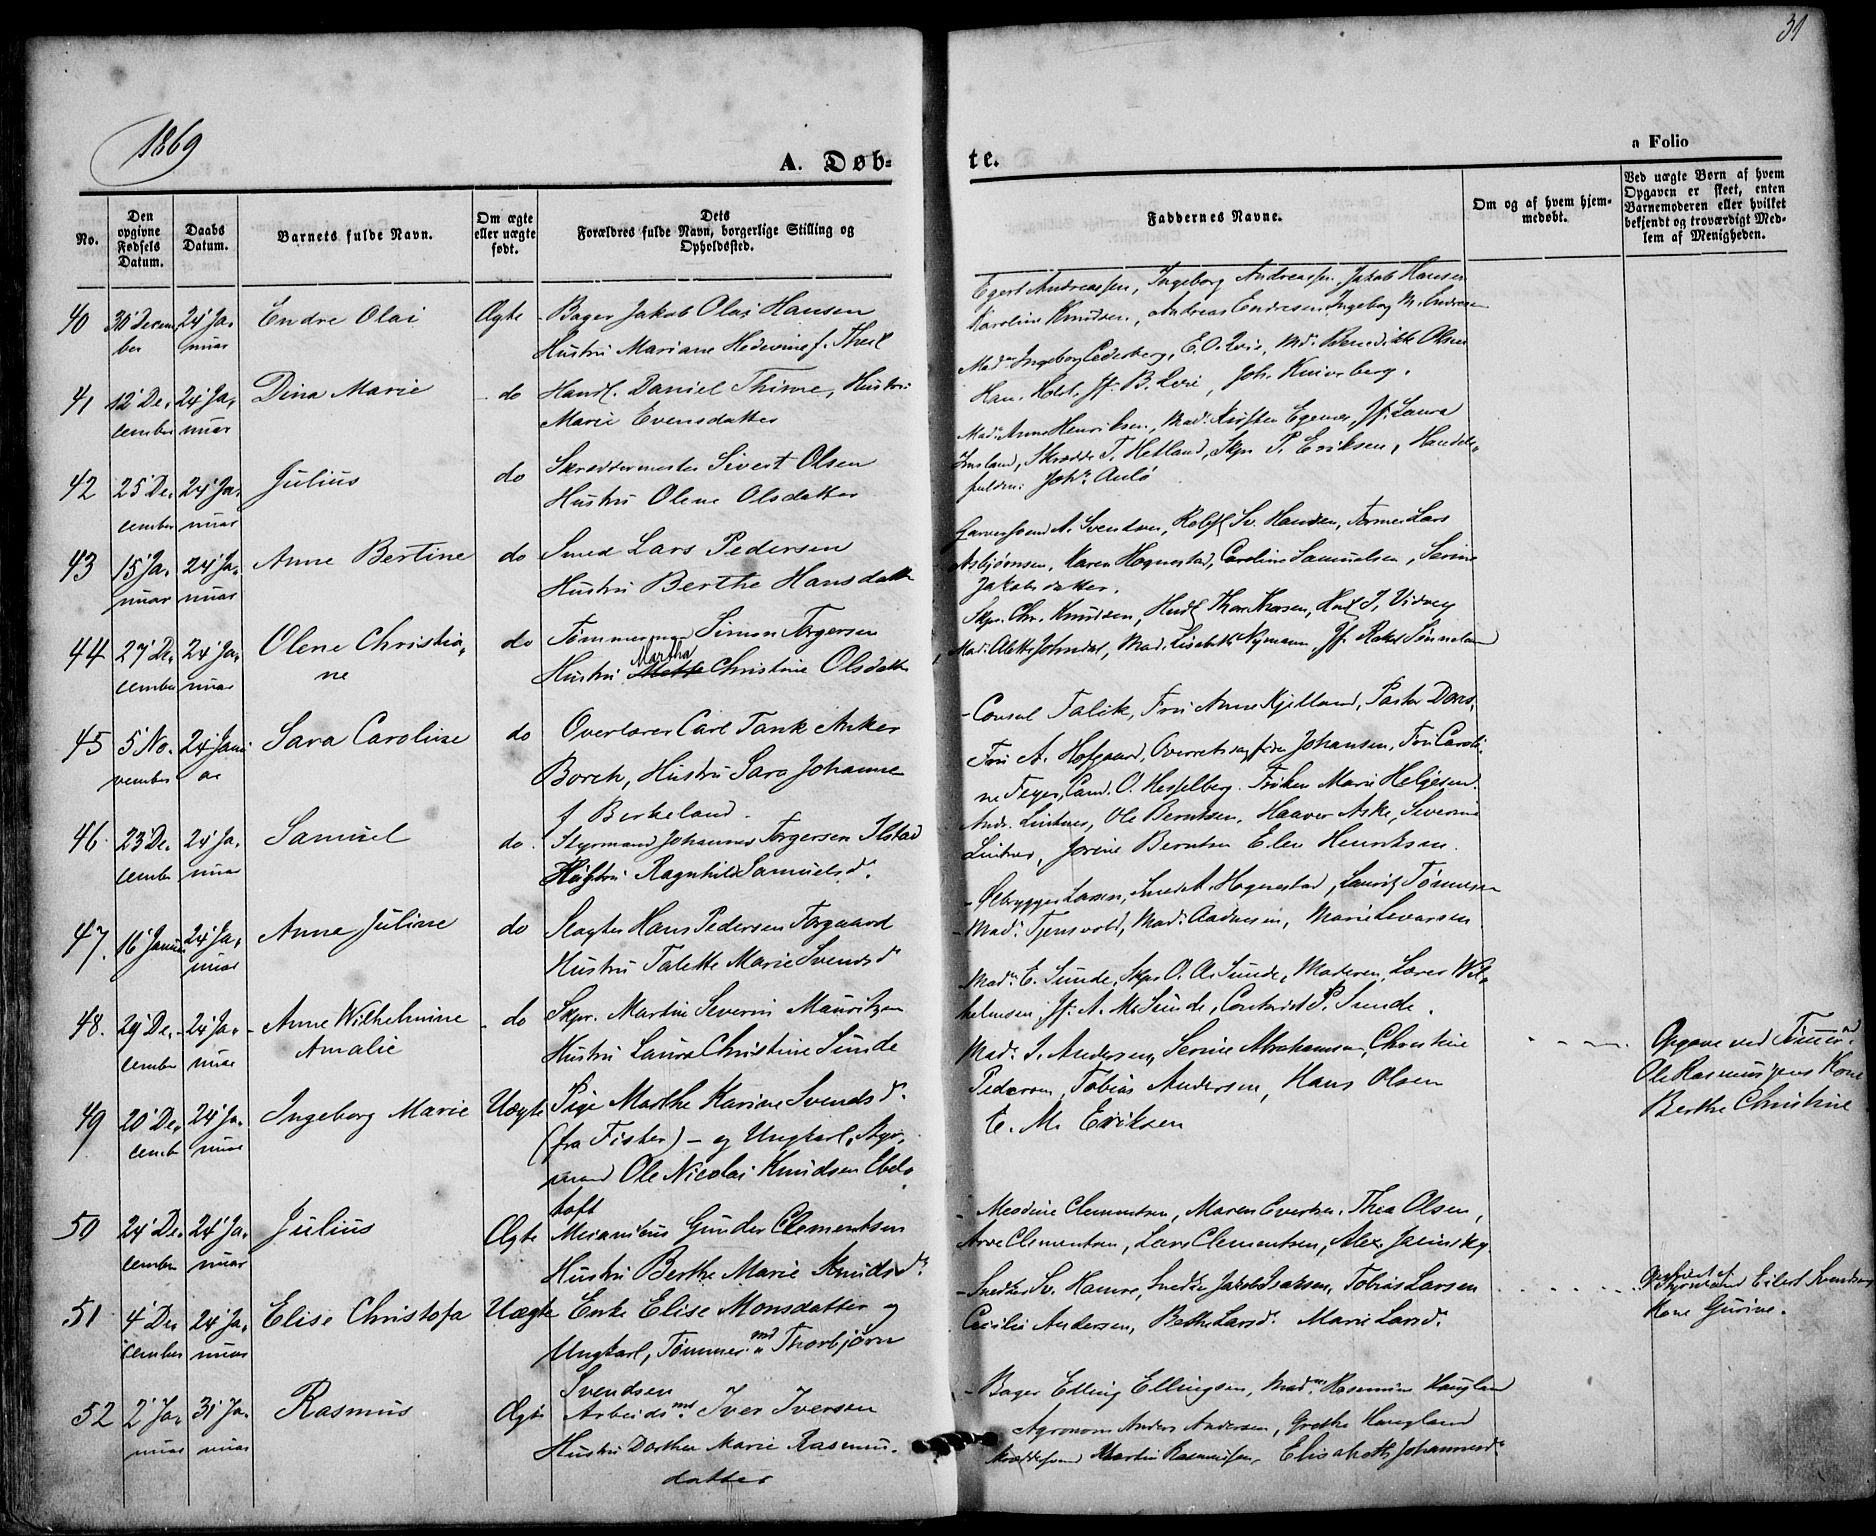 31
1869
A. Døb-
te.
a Folio
No.
Den opgivne Fødsels Datum.
Daabs Datum.
Barnets fulde Navn.
Om ægte eller uægte født.
Dets Forældres fulde Navn, borgerlige Stilling og Opholdssted.
Faddernes Navne.
Om og af hvem hjemmedøbt.
Ved uægte Børn af hvem Opgaven er skeet, enten Barnemoderen eller hvilket bekjendt og troværdigt Medlem af Menigheden.
40 30' Decem- 24' Ja- Endre Olai Ægte Bager Jakob Olai Hansen
ber nuar Hustru Mariane f. Theil
Egert Andreassen, Ingeborg Andreassen, Jakob Hansen
Karoline Knudsen, Andreas Endresen, Ingeborg M. Endresen
41 12' De- 24' Ja- Dina Marie do Handl. Daniel Thime, Hustru
cember nuar Marie Evensdatter
Mad. Ingeborg Cederberg, E. O. Md. Benedikte Olsen
Han. Holst, Jf. B. Joh.
42 25' De- 24' Ja- Julius do Skreddermester Sivert Olsen
cember nuar Hustru Olene Olsdatter
Mad. Anne Henriksen, Mad. Kirsten Egenes, Jf. Laura
T. Hetland, Skpr P. Eriksen, Handels-
43 15' Ja- 24' Ja- Anne Bertine do Smed Lars Pedersen
nuar nuar Hustru Berthe Hansdatter
Garversvend A. Svendsen, Sv. Hansen, Lars
Asbjørnsen, Karen Hognestad, Caroline Samuelsen, Serine
Jakobsdatter.
44 27' De- 24' Ja- Olene Christia- do Tømmermand Simon Torgersen
cember nuar ne Hustru Martha Christine Olsdatter
Skpr. Chr. Knudsen, Thor J. Vidvey
Mad. Alette Mad. Lisabeth Nymann, Jf. Rakel
45 5' No- 24' Janu- Sara Caroline do Overlærer Carl Tank Anker
vember ar Borch, Hustru Sara Johanne
f. Berkeland.
- Consul Falck, Fru Anne Kjelland, Pastor
Fru A. Hofgaard, Overretssagfører Johansen, Fru Caroli-
ne Feyer, Cand. O. Hesselberg. Frøken Marie Helgesen.
46 23' De- 24' Ja- Samuel do. Styrmand Johannes Torgersen Ilstad
cember nuar Hustru Ragnhild Samuelsd.
Andr. Lintner, Ole Berntsen, Haaver Aske, Severine
Lintner, Jorine Berntsen Elen Henriksen.
47. 16' Januar 24' Ja- Anne Juline do Slagter Hans Pedersen Torgaard
nuar Hustru Talette Marie Svendsdr
- Ølbrygger Larsen, Smed A. Hognestad, Lauritz Tønnesen
- Mad. Tjensvold, Mad. Marie Sivarsen
48. 29' De- 24' Ja- Anne Wilhelmine do Skpr. Martin Severin Mauritzen
cember nuar Amalie Hustru Laura Christine Sunde
Mad. E. Sunde, Skpr O. A. Sunde, Moderen, Lærer Wil-
helmsen, Jf. A. M. Sunde, Contorist P. Sunde.
49 20' De- 24' Ja- Ingeborg Marie Uægte Pige Marthe Karine Svendsdr
cemb nuar (fra Fister) - og Ungkarl, Styr-
mand Ole Nicolai Knudsen Ebel-
toft
Mad. J. Andersen, Serine Abrahamsen, Christine
Pedersen, Tobias Andersen, Hans Olsen
E. M. Eriksen
Opgave ved Tømmermd
Ole Rasmussens Kone
Berthe Christine
50 24' De- 24' Ja- Julius Ægte Mecanicus Gunder Clementsen
cember nuar Hustru Berthe Marie Knudsdr
- Clementsen, Maren Evertsen, Thea Olsen,
Clementsen, Lars Clementsen, Alex.
51 4' De- 24' Ja- Elise Christofa Uægte Enke Elise Monsdatter og
cember nuar Ungkarl, Tømmermd Thorbjørn
Svendsen
- Snedker Sv. Hamre, Snedker Jakob Isaksen, Tobias Larsen
Cecilie Andersen, Bethe Larsd. Marie Larsd.
Styrmand Eilert Svendsens
Kone Gurine.
52 2' Ja- 31' Ja- Rasmus Ægte Arbeidsmd Iver Iversen
nuar nuar Hustru Dorthea Marie Rasmus-
datter
- Bager Elling Ellingsen, Madm Rasmine Haugland
Agronom Anders Andersen, Grethe Haugland
Martin Rasmussen, Elisabeth Johannesdr